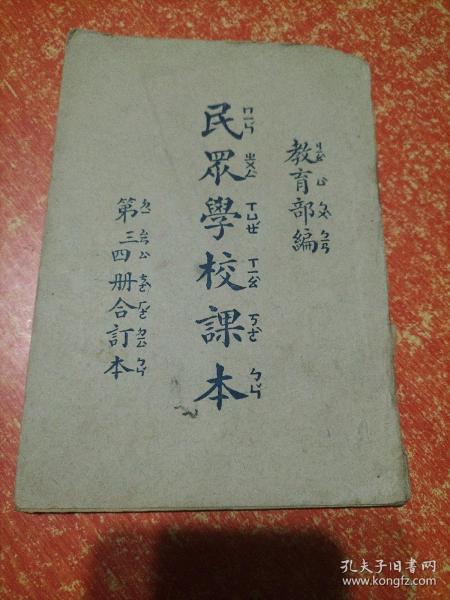 教育部編
民眾學校課本
第三四册合訂本
孔夫子旧书网
www.kongfz.com